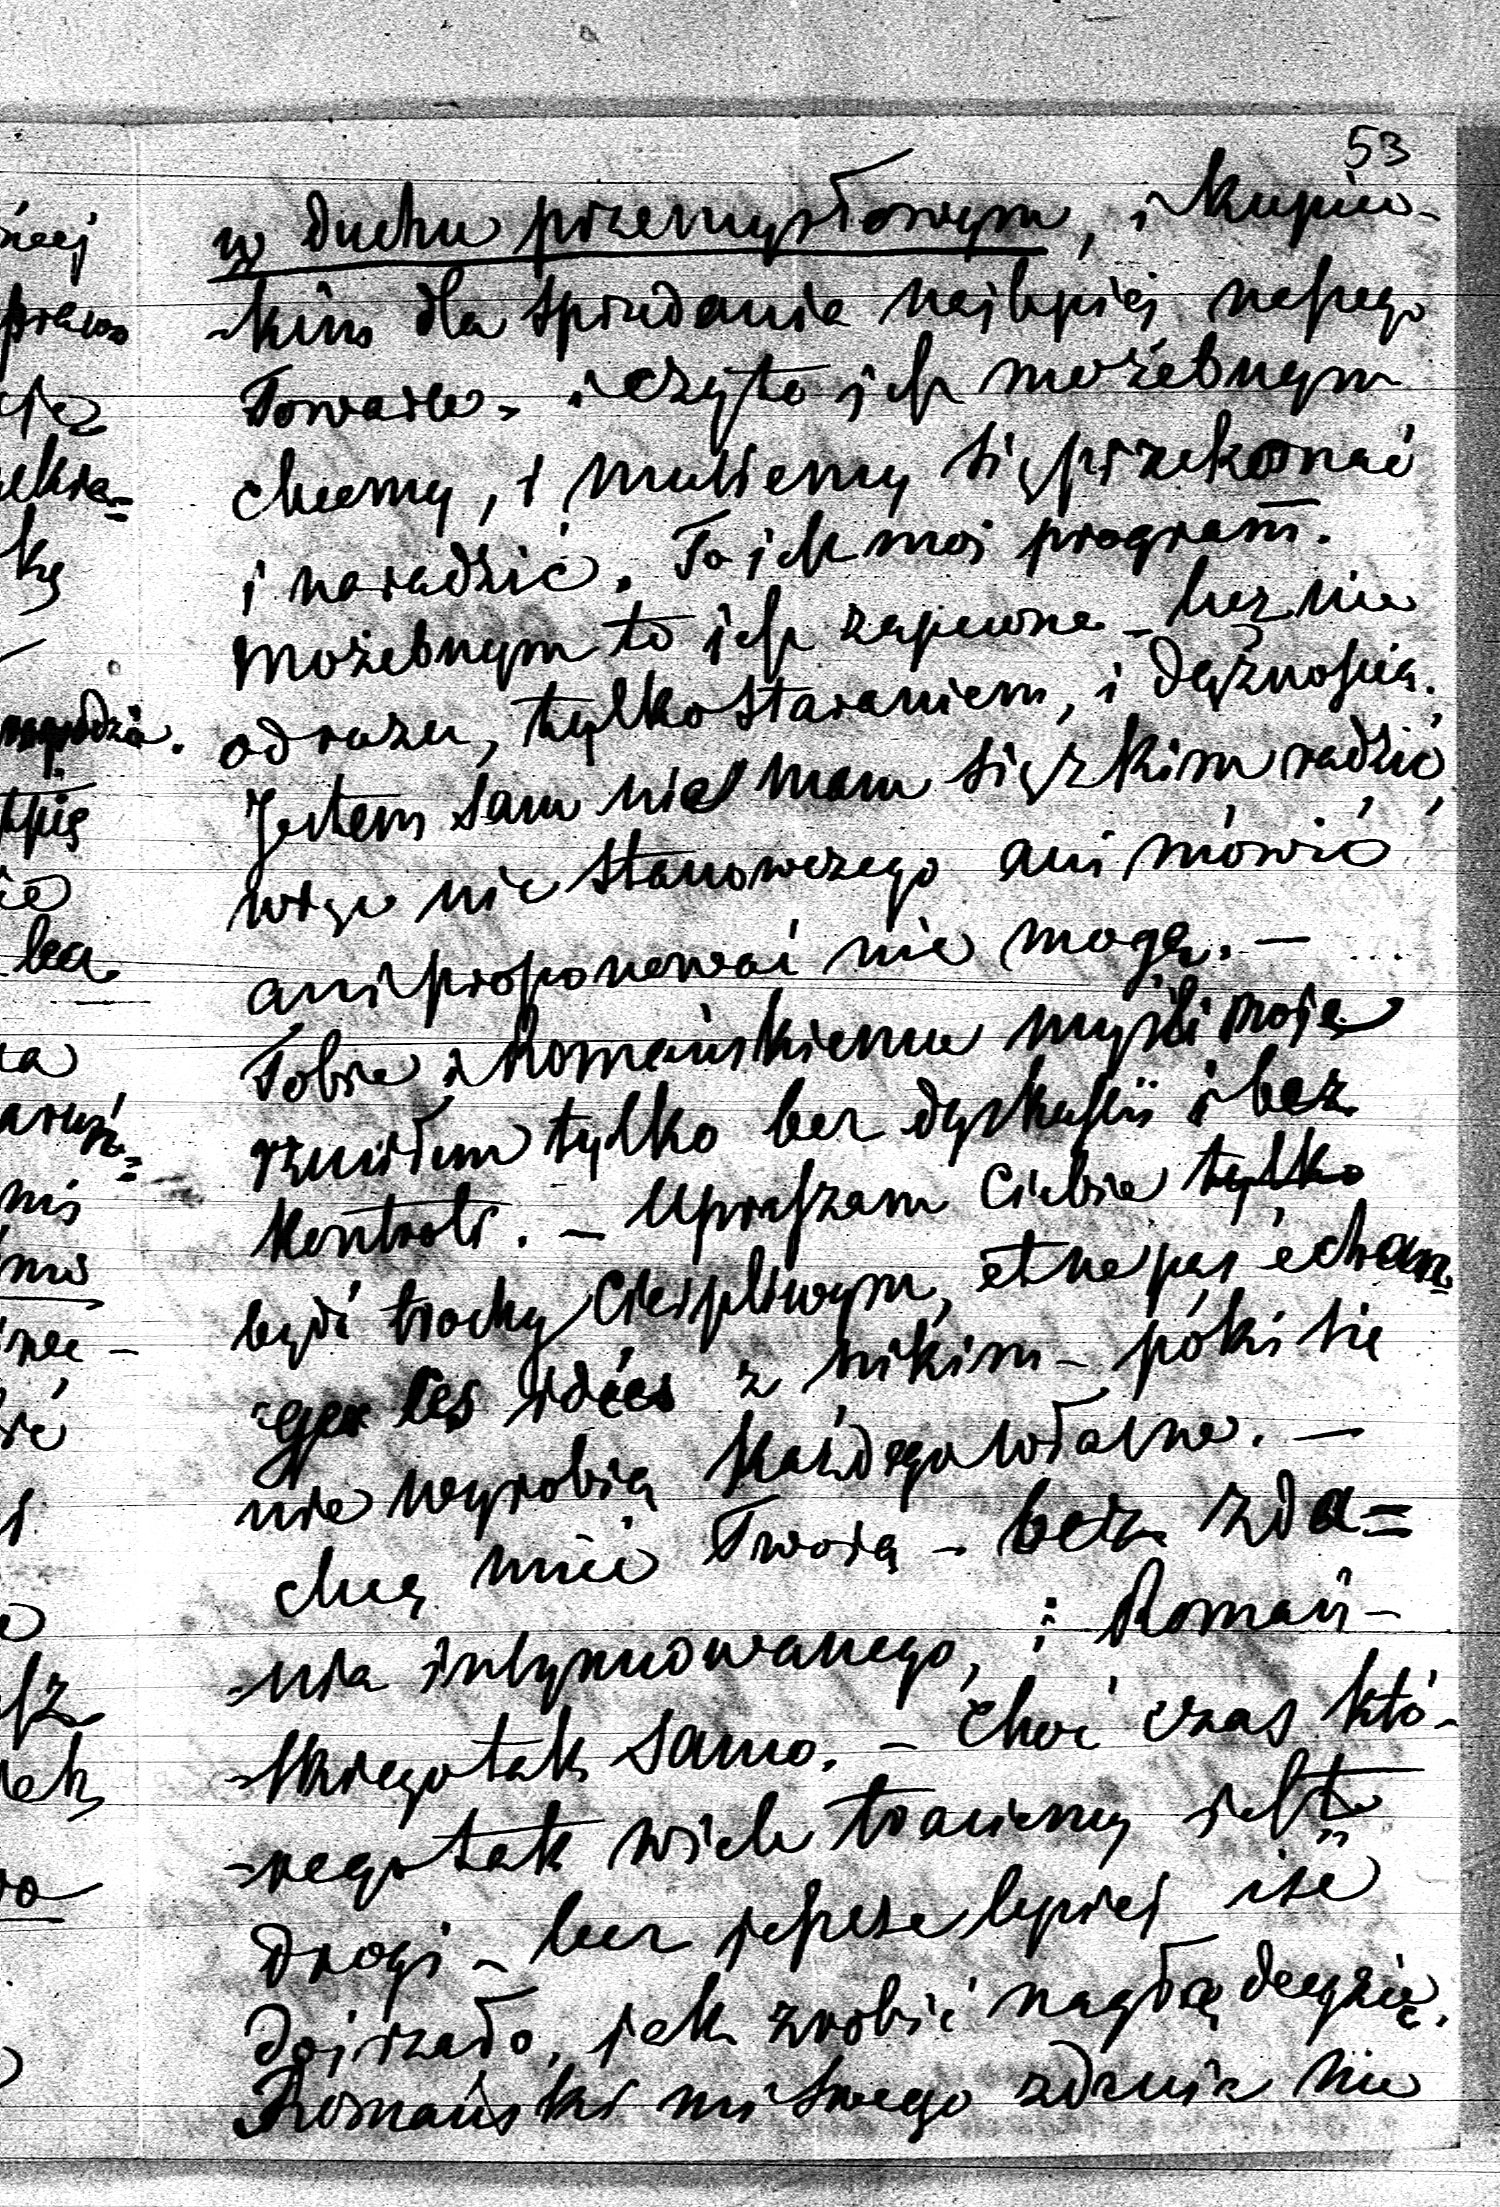 53
w duchu przemysłowym, i kupiec-
-kim dla sprzedania najlepiej naszego
Towaru - i czy to jest możebnym
chcemy, i musiemy się przekonać
i naradzić. To jest mój program.
Możebnym to jest zapewne - lecz nie
od razu, tylko staraniem, i dążnością.
Jestem sam nie mam się z kim radzić
więc nic stanowczego ani mówić
ani proponować nie mogę. -
Tobie i Romańskiemu myśli moje
rzuciłem tylko bez dyskusii i bez
kontroli. - Upraszam Ciebie tylko
bądź trochę cierpliwym, et ne pas échan=
=ger les idées z nikim - póki się
nie wyrobią każdego własne. -
chcę mieć Twoją - bez zda=
-nia intymowanego, i Romań-
-skiego tak samo. - Choć czas któ-
-rego tak wiele tracimy jest
drogi - lecz jeszcze lepiej iże
dojrzało, jak zrobić nagłą decyzię.
Romański mi swego zdania nie
niej
prawo
kę
lea
nis